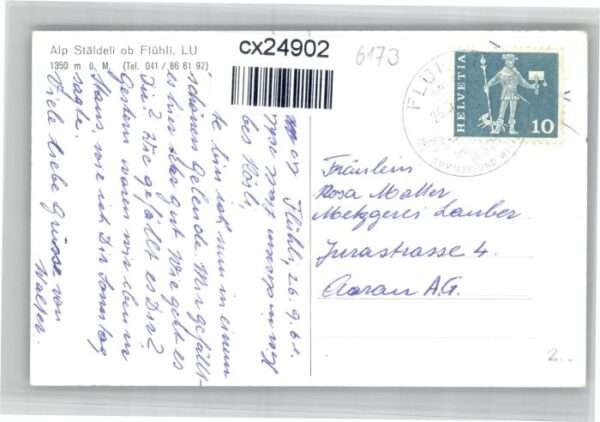 Alp Stäldeli ob Flühli, LU
1350 m ü. M. (Tel. 041 / 86 61 92)
cx24902
6173
HELVETIA
10
FLÜ
Flühli, 26. 9. 61.
bes Rösli,
te bin ich nun in einem
schönen Gelände. Mir gefällt
es hier sehr gut. Wie geht es
Dir? Wie gefällt es Dir?
Gestern waren wir eben in
Stans, wie ich Dir Sonntag
sagte.
Viele liebe Grüsse von
Walter.
Fräulein
Rosa Matter
Metzgerei Lauber
Jurastrasse 4.
Aarau A.G.
2..